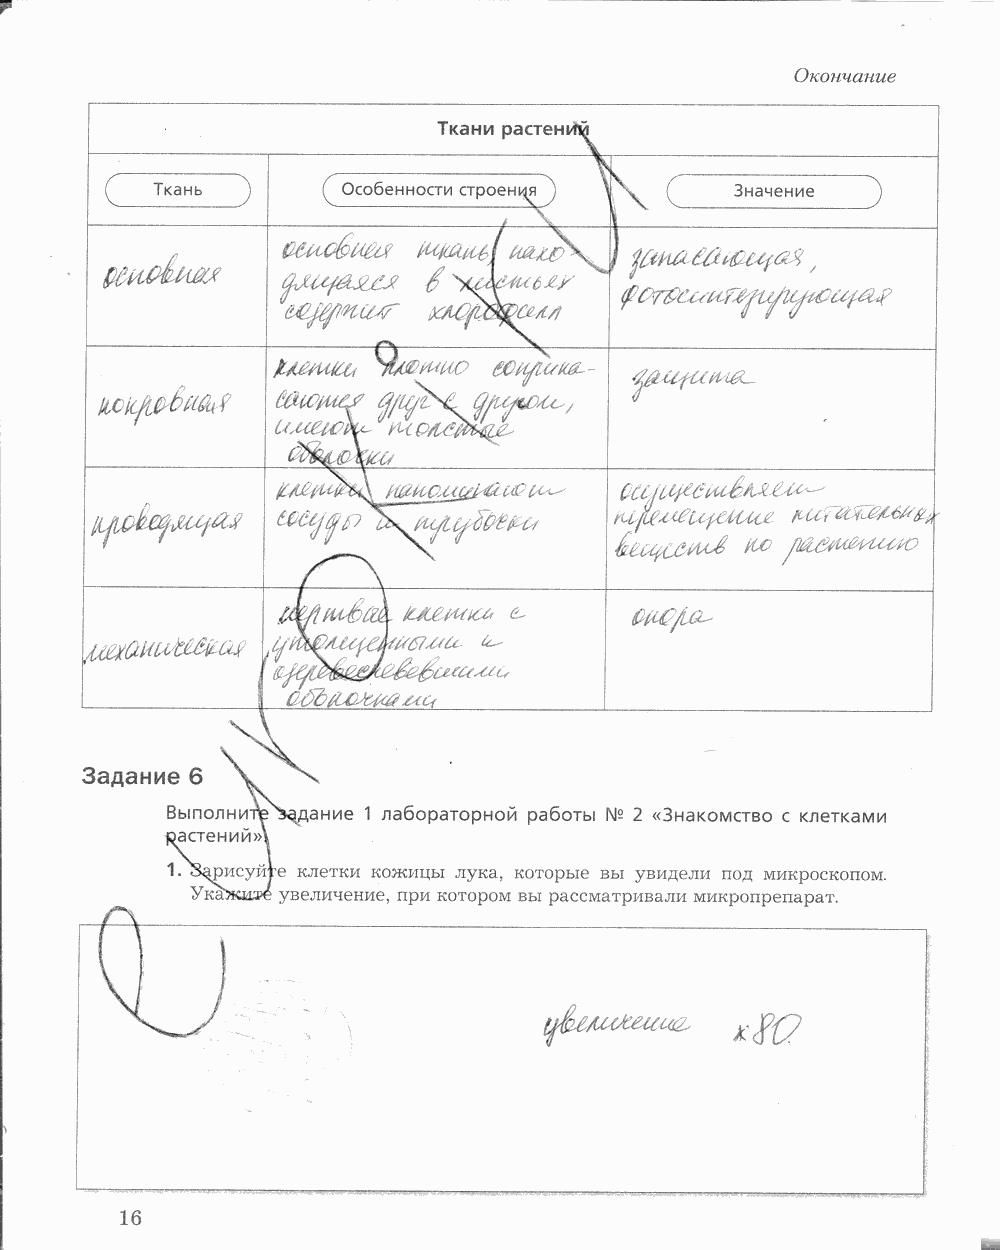 Окончание
Ткани растений
Ткань
Особенности строения
Значение
основная
основная ткань, нахо-
дящаяся в листьях
содержит хлорофилл
запасающая,
фотосинтезирующая
покровная
клетки плотно соприка-
саются друг с другом,
имеют толстые
оболочки
защита
проводящая
клетки напоминают
сосуды и трубочки
осуществляет
перемещение питательных
веществ по растению
механическая
мертвые клетки с
утолщенными и
одревесневевшими
оболочками
опора
Задание 6
Выполните задание 1 лабораторной работы № 2 «Знакомство с клетками
растений».
1. Зарисуйте клетки кожицы лука, которые вы увидели под микроскопом.
Укажите увеличение, при котором вы рассматривали микропрепарат.
увеличение х80.
16